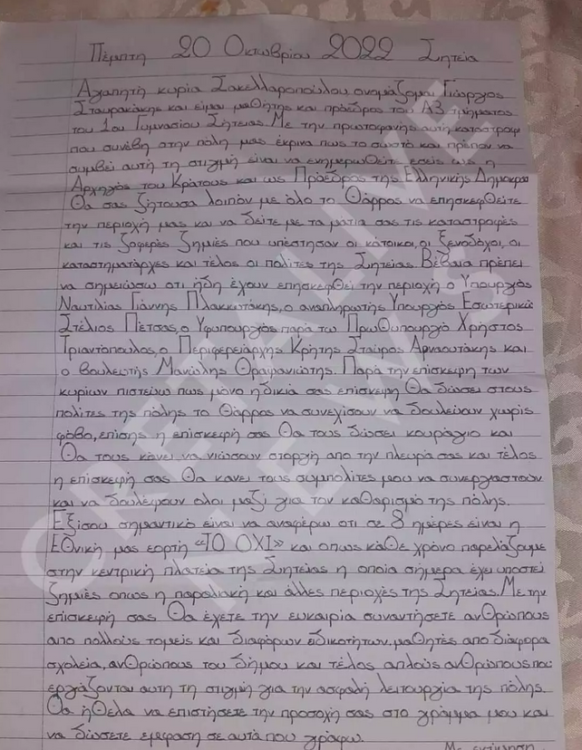 Πέμπτη 20 Οκτωβρίου 2022 Σητεία
Αγαπητή κυρία Σακελλαροπούλου ονομάζομαι Γιώργος
Σταυρακάκης και είμαι μαθητης και πρόεδρος του Α3 τμήματος
του 1ου Γυμνασίου Σητειας. Με την πρωτοφανης αυτη καταστροφ
που συνέβη στην πόλη μας έκρινα πως το σωστό και πρέπον να
συμβεί αυτή τη στιγμή είναι να ενημερωθείτε εσείς ως η
Αρχηγός του Κράτους και ως Πρόεδρος της Ελληνικής Δημοκρα
Θα σας ζήτουσα λοιπόν με όλο το θάρρος να επησκεφθείτε
την περιοχή μας και να δείτε με τα ματια σας τις καταστροφές
και τις ζοφερές ζημιές που υπέστησαν οι κάτοικοι, οι ξενοδόχοι, οι
καταστηματάρχες και τέλος οι πολίτες της Σητείας. Βέβαια πρέπει
να σημειώσω οτι ήδη έχουν επησκεφθεί την περιοχή ο Υπουργός
Ναυτιλίας Γιάννης Πλακιωτάκης, ο αναπληρωτής Υπουργός Εσωτερικώ
Στέλιος Πέτσας, ο Υφυπουργός παρά τω Πρωθυπουργό Χρήστος
Τριαντόπουλος, ο Περιφερειάρχης Κρήτης Σταύρος Αρναουτάκης και
ο βουλευτής Μανώλης Θραψανιώτης. Παρά την επίσκεψη των
κυρίων πιστεύω πως μόνο η δικιά σας επίσκεψη θα δώσει στους
πολίτες της πόλης το θάρρος να συνεχίσουν να δουλεύουν χωρίς
φόβο, επίσης η επισκεψή σας θα τους δώσει κουράγιο και
θα τους κάνει να νιώσουν στοργή απο την πλευρά σας και τέλος
η επισκεψή σας θα κανει τους συμπολίτες μου να συνεργαστούν
και να δουλέψουν ολοι μαζί για τον καθαρισμό της πόλης.
Εξίσου σημαντικό είναι να αναφέρω οτι σε 8 ημέρες είναι η
Εθνική μας εορτή «ΤΟ ΟΧΙ» και οπως κάθε χρόνο παρελάζουμε
στην κεντρική πλατεία της Σητείας η οποία σήμερα έχει υποστεί
ζημιές οπως η παραλιακή και άλλες περιοχές της Σητείας. Με την
επισκεψή σας θα έχετε την ευκαιρία συναντήσετε ανθρώπους
απο πολλούς τομείς και διαφόρων ειδικοτήτων, μαθητές απο διάφορα
σχολεία, ανθρώπους του δήμου και τέλος απλους ανθρώπους που
εργάζονται αυτη τη στιγμή για την ασφαλή λειτουργία της πόλης.
Θα ήθελα να επιστήσετε την προσοχή σας στο γράμμα μου και
να δώσετε έμφαση σε αυτά που γράφω.
Με εκτίμηση
CRETALIVE
NEWS